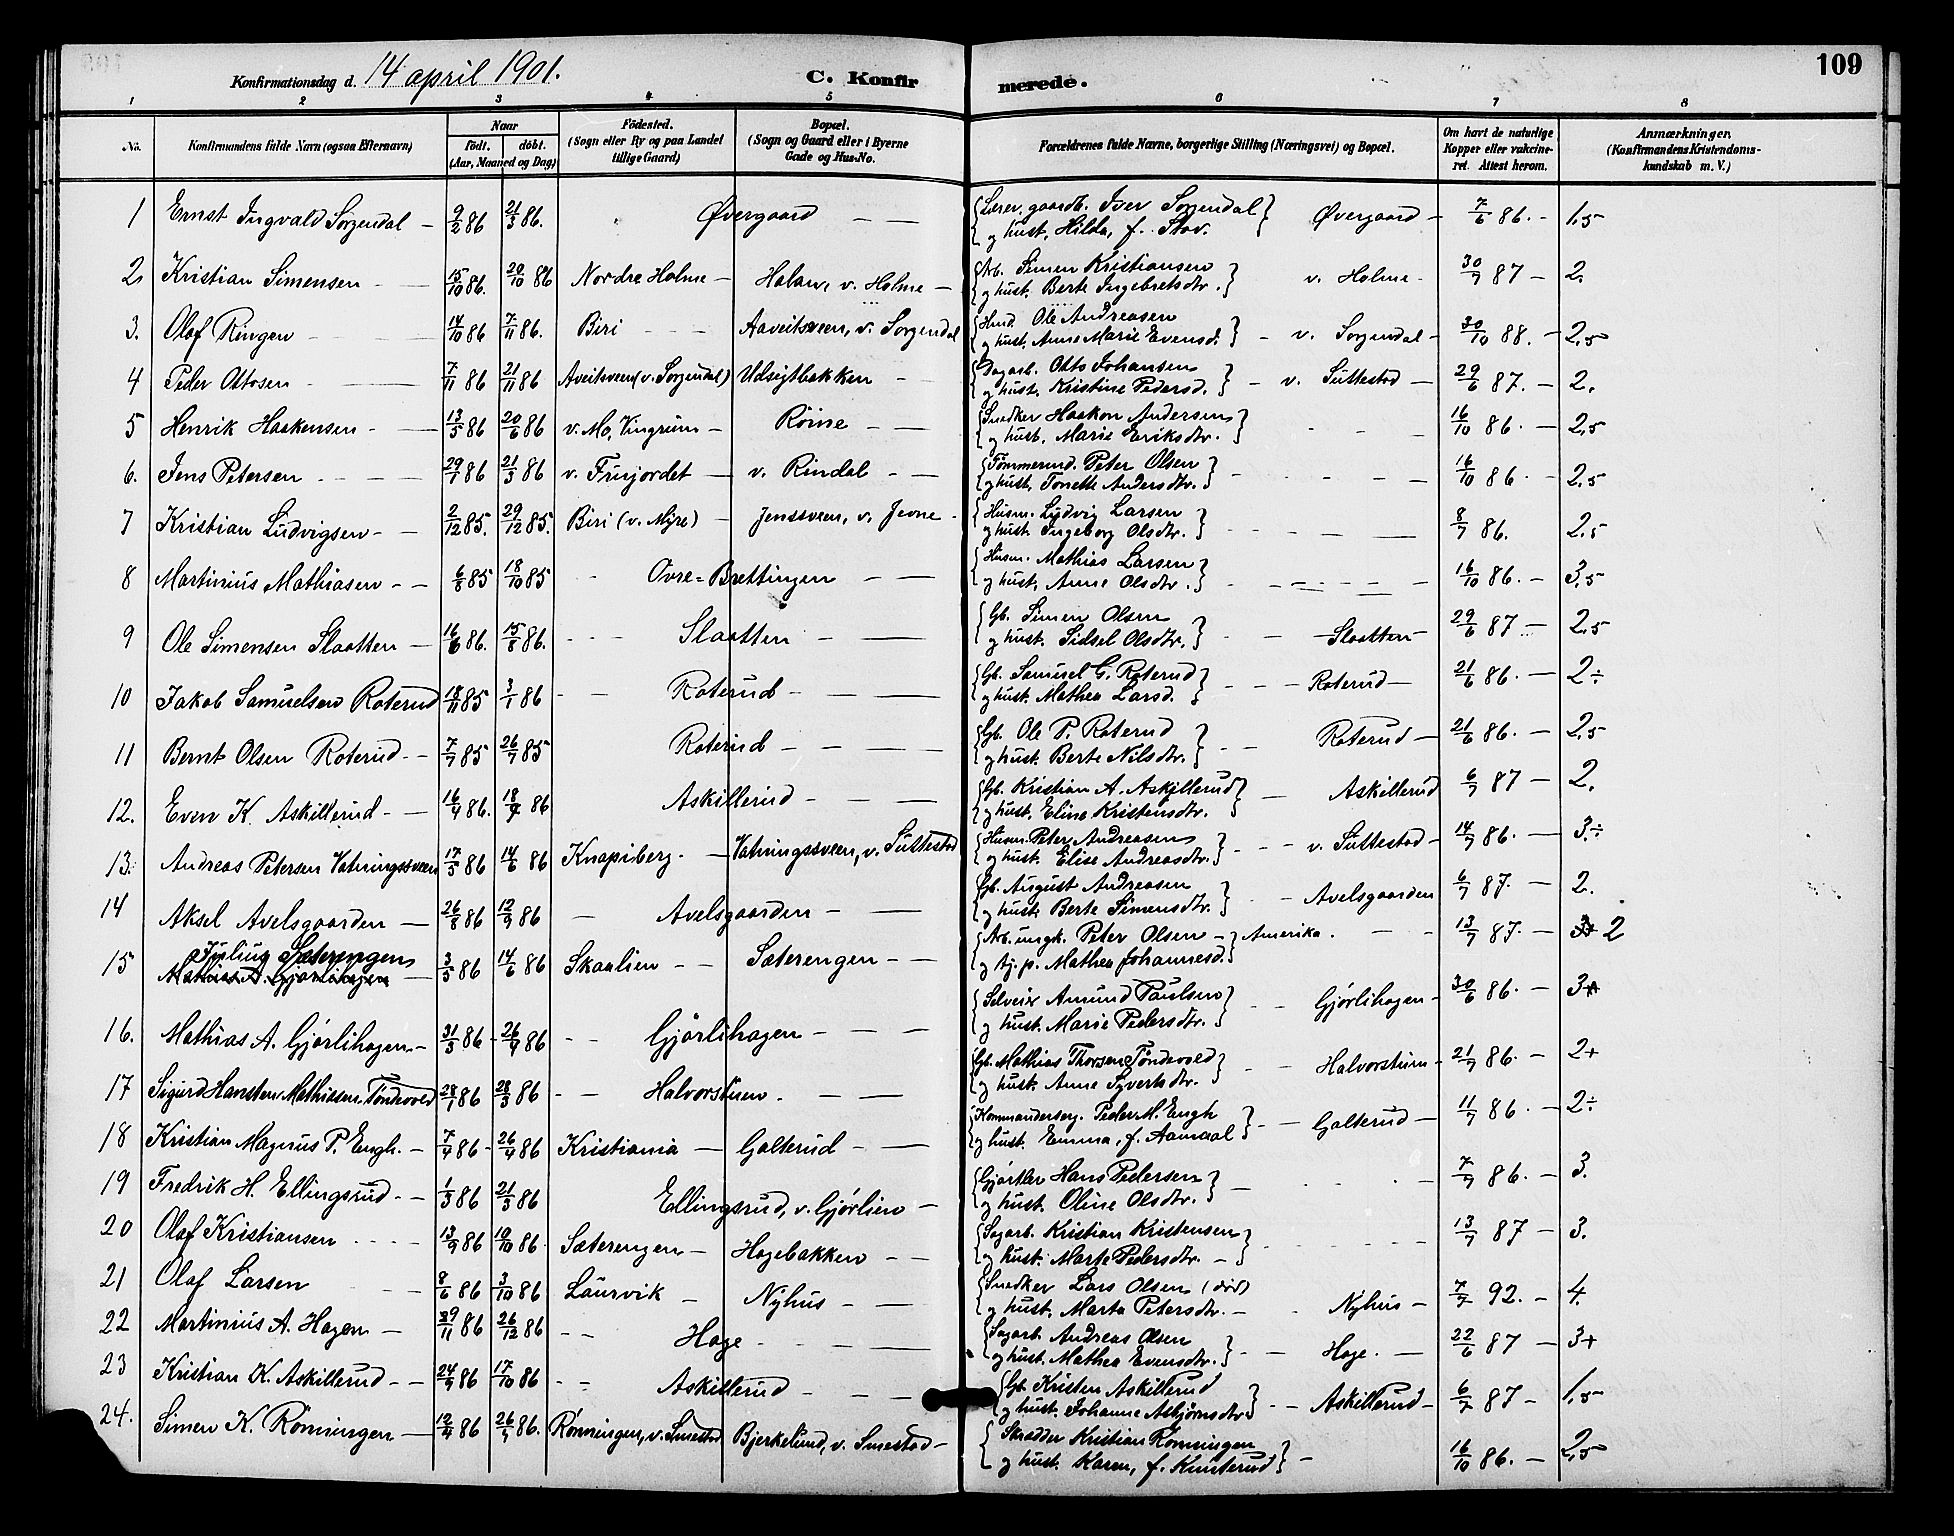 109
Konfirmationsdag d. 14 april 1901. C. Konfirmerede.
1 2 3 4 5 6 7 8
No. Konfirmandens fulde Navn (ogsaa Efternavn) Naar Födt. döbt. (Aar, Maaned og Dag) Födested. (Sogn eller By og paa Landet tillige Gaard) Bopæl. (Sogn og Gaard eller i Byerne Gade og Hus-No. Forældrenes fulde Navne, borgerlige Stilling (Næringsvei) og Bopæl. Om havt de naturlige Kopper eller vakcineret. Attest herom. Anmærkninger. (Konfirmandens Kristendomskundskab m. V.)
1 Ernst Ingvald Sorgendal — 9/2 86 21/3 86. Övergaard — — {Lærer, gaardb. Iver Sorgendal} Övergaard — 7/6 86. - 1,5
og hust. Hilda, f. Stov.
2. Kristian Simensen — 15/10 86. 20/10 86 Nordre Holme — v. Holme — {Arb. Simen Kristiansen} v. Holme - 30/7 87 — 2.
og hust. Berte Ingebretsdtr.
3. Olaf Ringen 14/10 86 7/11 86. Biri - - - Aaveitsveen, v. Sorgendal {Husm. Ole Andreasen} v. Sorgendal — 30/10 88. — 2,5
og hust. Anne Marie Evensd.
4 Peder Ottosen 7/11 86 21/11 86 Aveitsveen (v. Sorgendal) Udsigtbakken — {Dagarb. Otto Johansen} - v. Suttestad — 29/6 87. — 2.
og hust. Kristine Pedersd.
5 Henrik Haakensen — 13/5 86 20/6 86 v. Mo, Vingrum — Röine — {Snedker Haakon Andersen} 16/10 86. — 2,5
og hust. Marie Eriksdtr.
6. Jens Petersen 29/1 86 21/3 86 v. Frujordet — v. Rindal — {Tömmermd. Peter Olsen} 16/10 86 - 2,5
og hust. Tonette Andersdtr.
7 Kristian Ludvigsen — 2/12 85. 29/12 85. Biri (v. Mýre) — Jenssveen, v. Jevne - {Husm. Ludvig Larsen} 8/7 86. 2,5
og hust. Ingeborg Olsdtr.
8 Martinius Mathiasen — 6/8 85 18/10 85 Övre-Brettingen — {Husm. Mathias Larsen} 16/10 86. — 3,5
og hust. Anne Olsdtr.
9 Ole Simensen Slaatten — 16/6 86. 15/8 86. Slaatten — {Gb. Simen Olsen} Slaatten — 29/6 87 — 2,5
og hust. Sidsel Olsdtr.
10 Jakob Samuelsen Roterud 18/11 85 3/1 86 Roterud — {Gb. Samuel G. Roterud} Roterud — 21/6 86. — 2÷
og hust. Mathea Larsd.
11 Bernt Olsen Roterud — 7/7 85 26/7 85 Roterud — {Gb. Ole P. Roterud} Roterud — 21/6 86. — 2,5
og hust. Berte Nilsdtr.
12. Even K. Askillerud — 16/4 86. 18/4 86 Askillerud — {Gb. Kristian A. Askillerud} Askillerud 6/7 87 — 2.
og hust. Eline Kristensdtr.
13. Andreas Petersen Vatningssveen 17/5 86 14/6 86 Knapisberg. — Vatningssveen, v. Suttestad {Husm. Peter Andreasen} v. Suttestad — 14/7 86. — 3÷
og hust. Elise Andreasdtr.
14 Aksel Avelsgaarden — 26/8 86 12/9 86 Avelsgaarden — {Gb. August Andreasen} Avelsgaarden 6/7 87. — 2.
og hust. Berte Simensdtr.
15 Julius Sæterengen 3/5 86 14/6 86 Skaalien — Sæterengen — {Arb. ungk. Peter Olsen} Amerika. 13/7 87. — 3+ 2
Mathias A. Gjörlihagen og pj. p. Mathea Johannesd.
16. Mathias A. Gjörlihagen — 31/3 86 26/4 86 Gjörlihagen — {Selveier Amund Paulsen} Gjörlihagen — 30/6 86. — 3+
og hust. Marie Pedersdtr.
17 Sigurd Hansten Mathiasen Töndevold 28/1 86 28/3 86 Halvorstuen — {Gb. Mathias Thorsen Töndevold} Halvorstuen — 21/7 86. — 2+
og hust. Anne Syvertsdtr.
18 Kristian Magnus P. Engh. — 7/4 86 26/4 86 Kristiania — Galterud — {Kommandersерg. Peder M. Engh} Galterud — 11/7 86. — 2÷
og hust. Emma, f. Aamaal
19 Fredrik H. Ellingsrud — 1/3 86 21/3 86 Ellingsrud, v. Gjörlien — {Gjörtler Hans Pedersen} 7/7 86. — 3.
og hust. Oline Olsdtr.
20 Olaf Kristiansen 13/9 86 10/10 86 Sæterengen — Hagebakken — {Sagarb. Kristian Kristensen} 13/7 87 — 3.
og hust. Marte Pedersdtr. —
21 Olaf Larsen 8/6 86 3/10 86 Laurvik — Nyhus — {Snedker Lars Olsen (död) Nyhus — 7/7 92. — 4.
og hust. Marta Petersdtr. —
22 Martinius A. Hagen — 29/11 86 26/12 86 Hage — {Sagarb. Andreas Olsen} Hage. — 22/6 87 — 3+
og hust. Mathea Evensdtr.
23 Kristian K. Askillerud — 24/9 86 17/10 86 Askillerud — {Gb. Kristen Askillerud} Askillerud — 6/7 87 — 1,5
og hust. Johanne Asbjörnsdtr.
24. Simen K. Rönningen — 12/4 86 26/4 86. Rönningen, v. Smestad Bjerkelund, v. Smestad — {Skrædder Kristian Rönningen} — 16/10 86. — 2,5
og hust. Karen, f. Kinterud